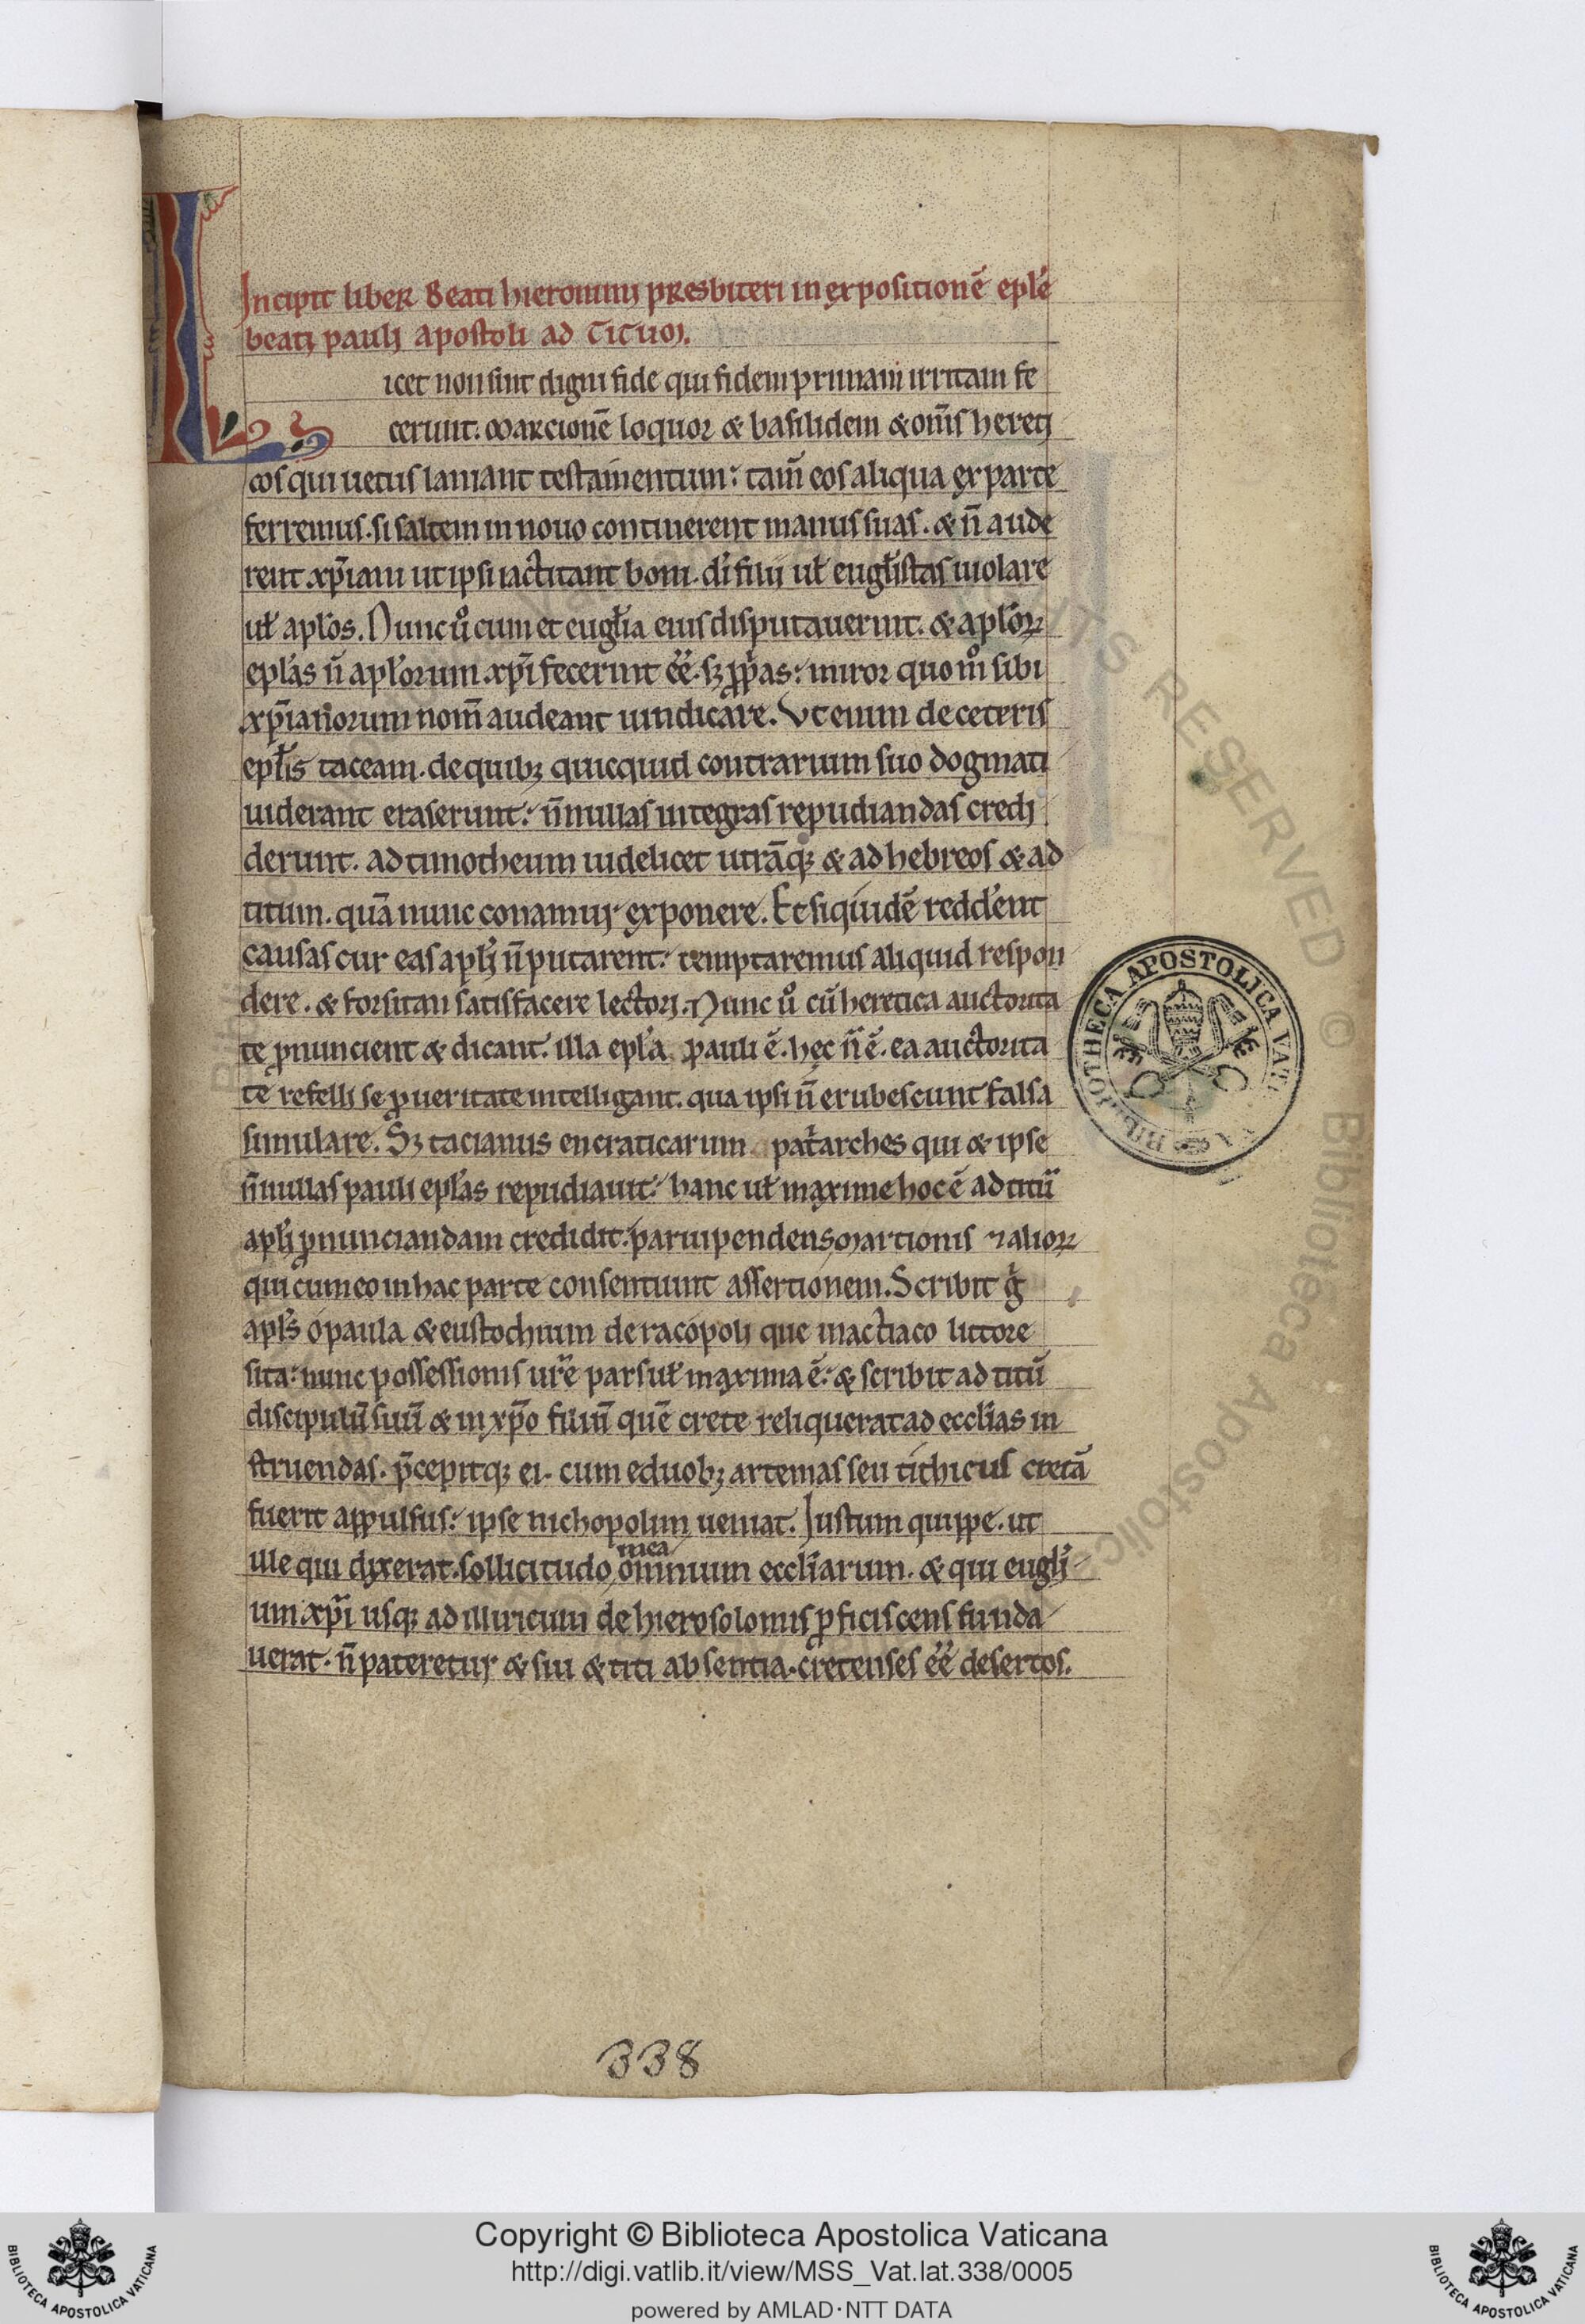 Incipit liber Beati hieronimi presbiteri in expositionē epl'e
beati pauli apostoli ad Titum.
Licet non sint digni fide qui fidem primam irritam fe
cerunt. Marcionē loquor & basilidem & om̄s hereti
cos qui uetus laniant testamentum: tam̄ eos aliqua ex parte
ferremus. si saltem in nouo continerent manus suas. & n̄ aude
rent xp̄iani ut ipsi iactitant boni. di' filii ul' eugl'istas uiolare
ul' apl'os. Nunc uº cum et eugl'ia eius disputauerint. & apl'oꝝ
epl'as n̄ apl'orum xp̄i fecerint ee̅. sꝫ ꝓp̃as: miror quomº sibi
xp̄ianorum nom̄ audeant uindicare. Vt enim de ceteris
epl'is taceam. de quibꝫ quicquid contrarium suo dogmati
uiderant eraserunt: n̄nullas integras repudiandas credi
derunt. ad timotheum uidelicet utrāqꝫ & ad hebreos & ad
titum. quā nunc conamur exponere. Et siquidē redd'ent
causas cur eas apl'i n̄ putarent: temptaremus aliquid respon
dere. & forsitan satisfacere lectori. Nunc uº cū heretica auctorita
te ꝓnuncient & dicant. illa epl'a pauli ē. hęc n̄ ē. ea auctorita
te refelli se ꝓ ueritate intelligant. qua ipsi n̄ erubescunt falsa
simulare. Sꝫ tacianus encraticarum pat'arches qui & ipse
n̄nullas pauli epl'as repudiauit: hanc ul' maxime hoc ē ad titū
apl'i ꝓnunciandam credidit: paruipendens Martionis ⁊ alioꝝ
qui cum eo in hac parte consentiunt assertionem. Scribit g̊
apl's o paula & eustochium de racopoli que in actiaco littore
sita: nunc possessionis ur̄e pars ul' maxima ē: & scribit ad titū
discipulū suū & in xp̄o filiū quē crete reliquerat ad eccl'ias in
struendas. p̄cepitqꝫ ei. cum e duobꝫ artemas seu tithicus cretā
fuerit appulsus: ipse nichopolim ueniat. Iustum quippe. ut
mea
ille qui dixerat. sollicitudo omnium eccl'iarum. & qui eugl'i
um xp̄i usqꝫ ad illiricum de hierosolomis ꝓficiscens funda
uerat. n̄ pateretur & sui & titi absentia. cretenses ee̅ desertos.
BIBLIOTHECA APOSTOLICA VATICANA
338
Copyright © Biblioteca Apostolica Vaticana
http://digi.vatlib.it/view/MSS_Vat.lat.338/0005
powered by AMLAD·NTT DATA
BIBLIOTECA APOSTOLICA VATICANA
BIBLIOTECA APOSTOLICA VATICANA